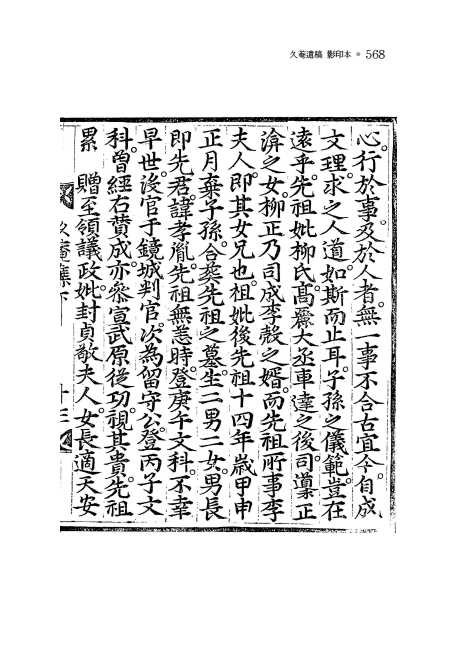 久菴遺稿 影印本 ● 568
心行於事及於人者無一事不合古宜今自成
文理求之人道如斯而止耳子孫之儀範豈在
遠乎先祖妣柳氏高麗大丞車達之後司稟正
渰之女柳正乃司成李慤之婿而先祖所事李
夫人卽其女兄也祖妣後先祖十四年歲甲申
正月棄子孫合葬先祖之墓生二男二女男長
卽先君諱孝胤先祖無恙時登庚午文科不幸
早世沒官于鏡城判官次爲留守公登丙子文
科曾經右贊成亦叅宣武原從功視其貴先祖
累 贈至領議政妣封貞敬夫人女長適天安
久菴集下 十三